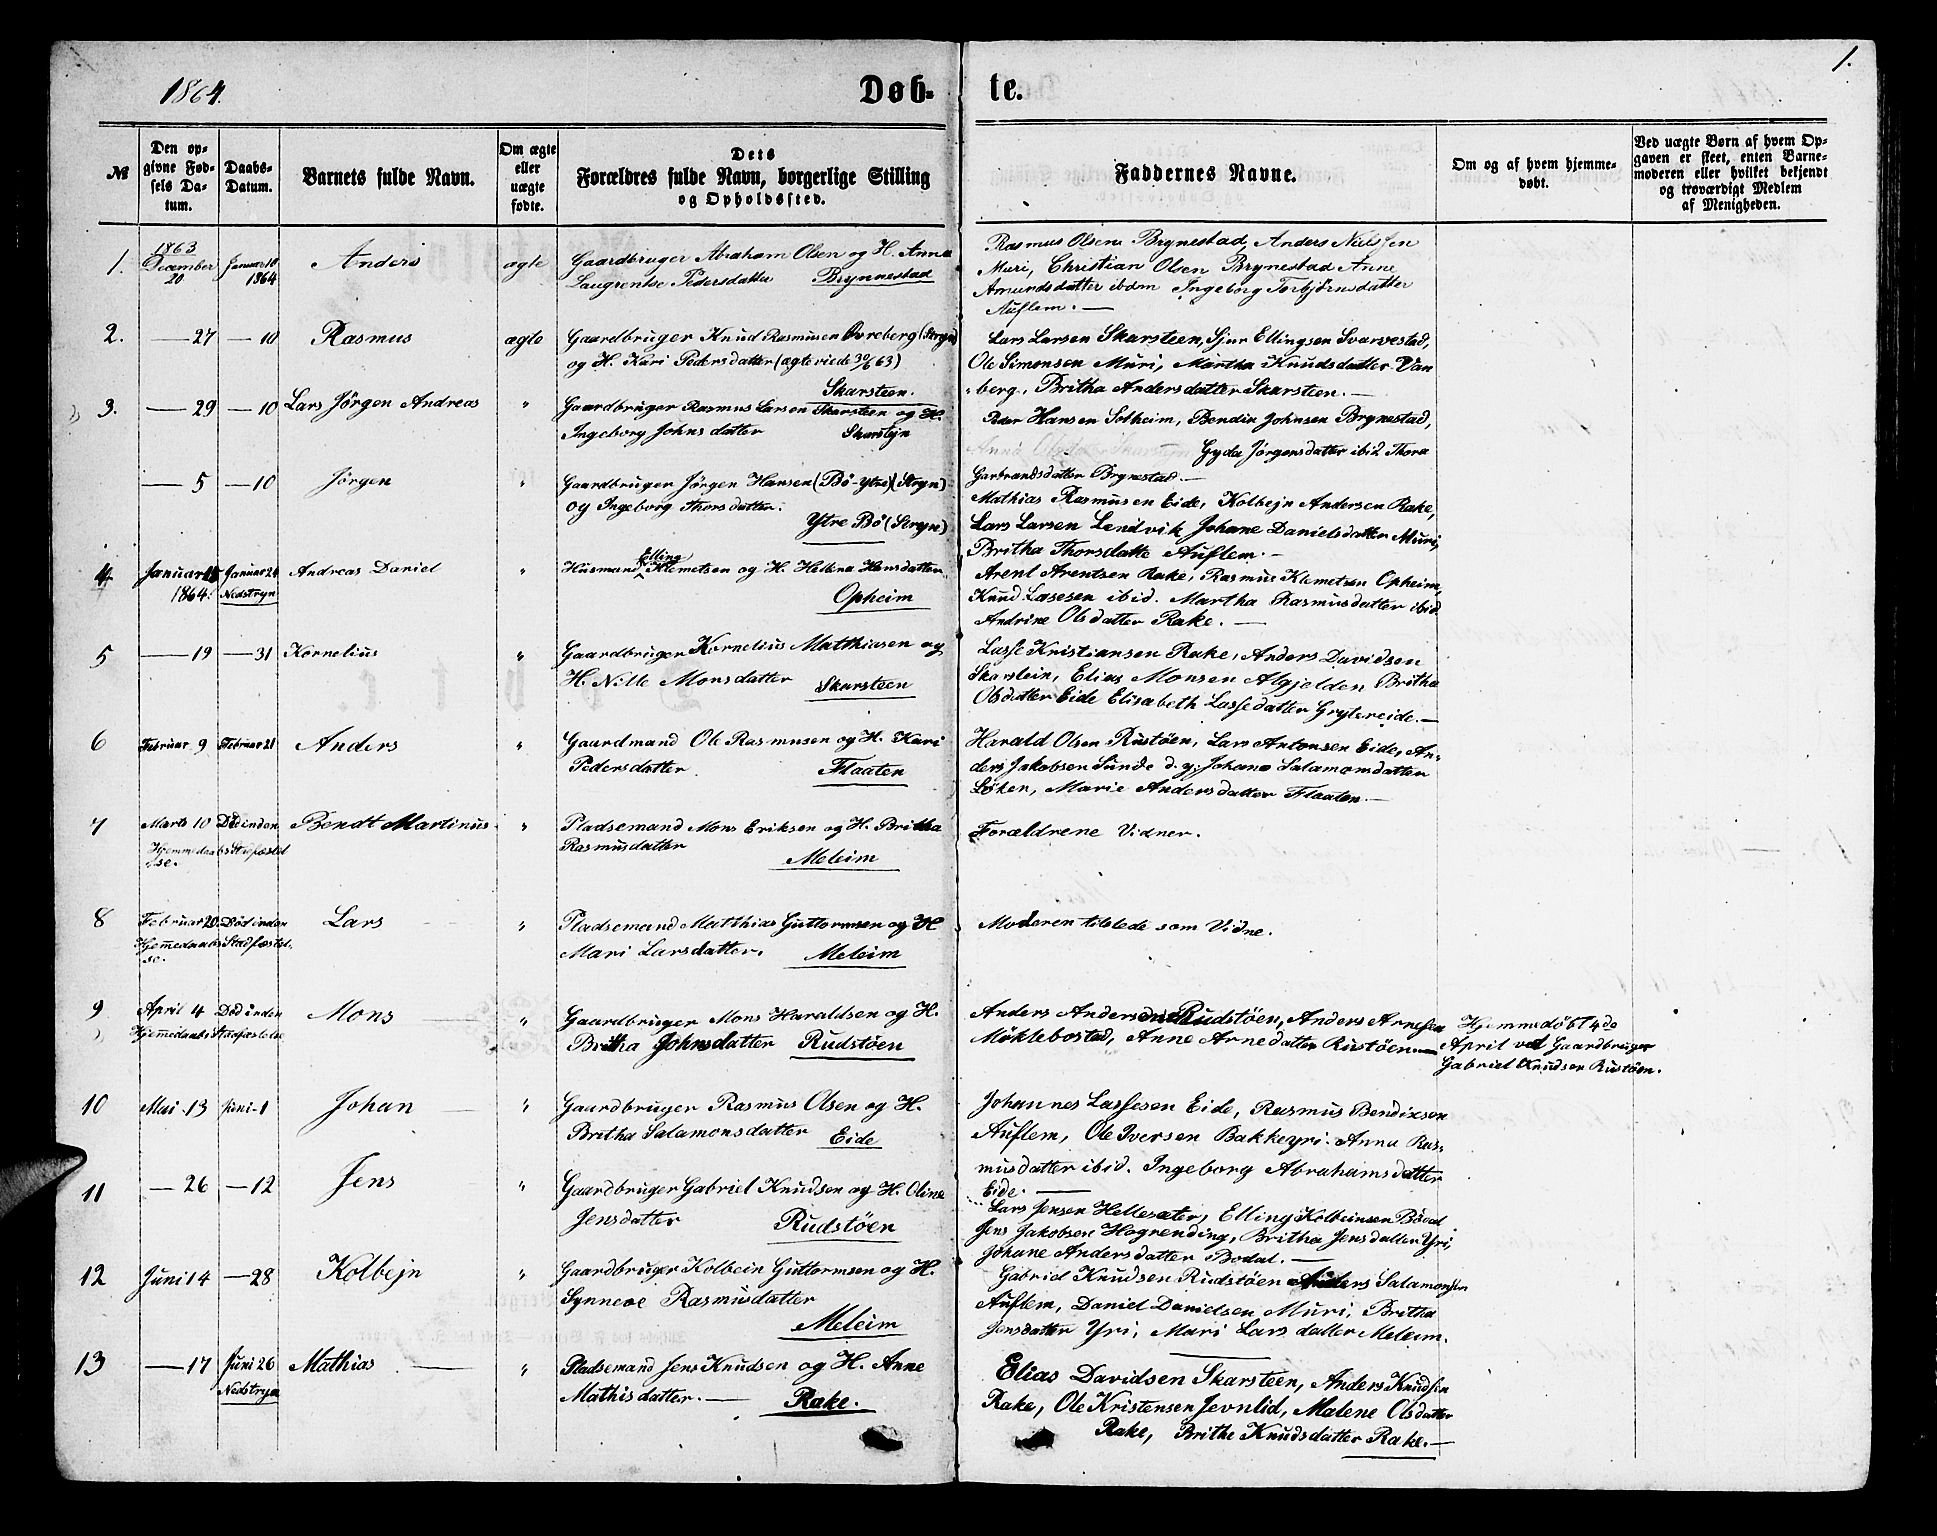 1864.
Døb-
te.
1.
№
Den op-
givne Fød-
sels Da-
tum.
Daabs-
Datum.
Barnets fulde Navn.
Om ægte
eller
uægte
fødte.
Dets
Forældres fulde Navn, borgerlige Stilling
og Opholdssted.
Faddernes Navne.
Om og af hvem hjemme-
døbt.
Ved uægte Børn af hvem Op-
gaven er skeet, enten Barne-
moderen eller hvilket bekjendt
og troværdigt Medlem
af Menigheden.
1.
1863
December
20
Januar 10
1864
Anders
ægte
Gaardbruger Abraham Olsen og H. Anna
Laugrentse Pedersdatter Brynnestad
Rasmus Olsen Brynestad, Anders Nielssen
Muri, Christian Olsen Brynestad Anne
Amundsdatter ibdm Ingeborg Torbjørnsdatter
Auflem. —
2.
— 27
— 10
Rasmus
ægte
Gaardbruger Knud Rasmusen Øvreberg (Stryn)
og H. Kari Pedersdatter (ægteviede 30/6 63)
Skarsteen.
Lars Larsen Skarsteen, Sjur Ellingsen Svarvestad,
Ole Simonsen Muri, Martha Knudsdatter Van
berg, Britha Andersdatter Skarsteen. —
3.
— 29
— 10
Lars Jørgen Andreas
"
Gaardbruger Rasmus Larsen Skarsteen og H.
Ingeborg Johnsdatter Skarstejn
Peder Hansen Solheim, Bendix Johnsen Brynestad,
Gyda Jørgensdatter ibid Thora
Garbrandsdatter Brynestad. —
— 5
— 10
Jørgen
"
Gaardbruger Jørgen Hansen (Bö-Ytre) (Stryn)
og Ingeborg Thorsdatter.
Ytre Bö (Stryn)
Mathias Rasmusen Eide, Kolbejn Andersen Rake,
Lars Larsen Lendvik Johane Danielsdatter Muri,
Britha Thorsdatte Auflem. —
4
Januar 15
1864.
Januar 24
Nedstryn
Andreas Daniel
"
Husmand Elling Klemetsen og H. Hellena Hansdatter
Opheim
Arent Arentsen Rake, Rasmus Klemetsen Opheim,
Knud Lasesen ibid. Martha Rasmusdatter ibid
Andrine Olsdatter Rake. —
5
— 19
— 31
Kornelius
"
Gaardbruger Kornelius Matthiasen og
H. Nille Monsdatter Skarsteen
Lasse Kristiansen Rake, Anders Davidsen
Skarstein, Elias Monsen Algjelden Britha
Olsdatter Eide Elisabeth Lassedatter Grytereide. —
6
Februar 9
Februar 21
Anders
"
Gaardmand Ole Rasmusen og H. Kari
Pedersdatter Flaaten
Harald Olsen Rustöen, Lars Antonsen Eide, An-
ders Jakobsen Sunde d. y; Johane Salamonsdatter
Löken, Marie Andersdatter Flaaten —
7
Marts 10
Död inden
Hjemmedaabs Stadfæstel
se.
Bendt Martinus
"
Pladsemand Mons Eriksen og H. Britha
Rasmusdatter
Meleim
Forældrene Vidner.
8
Februar 20
Död inden
Hjemedaabs Stadfæstel
se.
Lars
"
Pladsemand Matthias Guttormsen og H
Mari Larsdatter. Meleim
Moderen tilstede som Vidne.
9
April 4
Död inden
Hjemedaabs Stadfæstelse
Mons
"
Gaardbruger Mons Haraldsen og H.
Britha Johnsdatter Rudstöen
Anders Andersen Rudstöen, Anders Arnesen
Möklebostad, Anne Arnedatter Rustöen. —
Hjemmedöbt 4de
April ved Gaardbruger
Gabriel Knudsen Rustöen.
10
Mai 13
Juni 1
Johan
"
Gaardbruger Rasmus Olsen og H.
Britha Salamonsdatter Eide
Johannes Lassesen Eide, Rasmus Bendixsen
Auflem, Ole Iversen Bakkeyri. Anna Ras-
musdatter ibid. Ingeborg Abrahamsdatter
Eide. —
11
— 26
— 12
Jens
"
Gaardbruger Gabriel Knudsen og H. Oline
Jensdatter Rudstöen
Lars Jensen Hellesæter, Elling Kolbeinsen Bödal
Jens Jakobsen Hogrending, Britha Jensdatter Yri,
Johane Andersdatter Bodal. —
12
Juni 14
— 28
Kolbejn
"
Gaardbruger Kolbein Guttormsen og H.
Synneve Rasmusdatter
Meleim
Gabriel Knudsen Rudstöen Anders Salamonsen
Auflem, Daniel Danielsen Muri, Britha
Jensdatter Yri, Mari Larsdatter Meleim.
13
— 17
Juni 26
Nedstryn
Mathias
"
Pladsemand Jens Knudsen og H. Anne
Mathisdatter. — Rake.
Elias Davidsen Skarsteen, Anders Knudsen
Rake, Ole Kristensen Jevnlid, Malene Olsdatter
Rake, Brithe Knudsdatter Rake. —